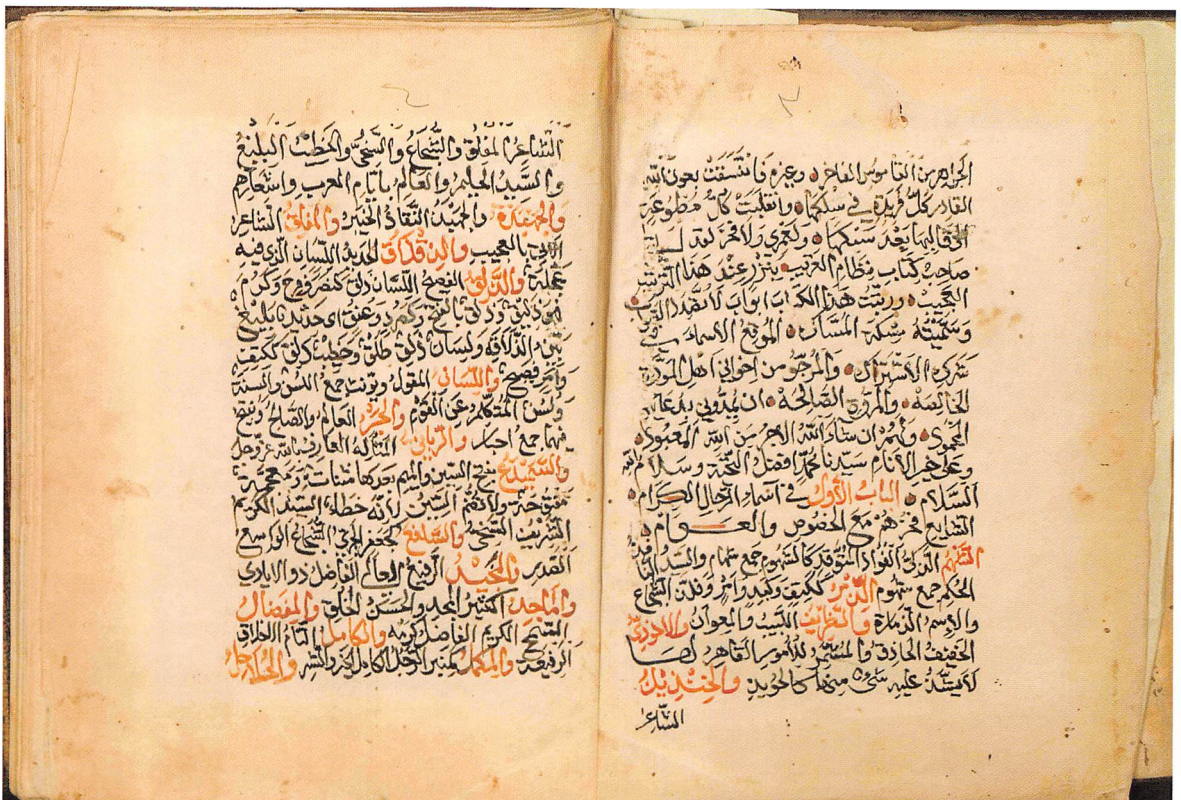 ٣
الجواهر من القاموس الفاخر وغيره فاتسقت بعون الله
القادر كل فريدة في سلكها وانقلبت كل مطبوعة
الى قالبها بعد سبكها ولعمري ولا فخر لقد
صاحب كتاب نظام الغريب ينزر عند هذا الترتيب
العجيب ورتبت هذا الكتاب ابواب لا
وسميته مسكة المشارك الموقع الاسماء في
شرك الاشتراك والمرجو من اخواني اهل المودة
الخالصة والمروة الصالحة ان يمدوني بدعاء
المحمود ولهم ان شاء الله الاجر من الله المعبود
وعلى خير الانام سيدنا محمد افضل التحية وسلام
السلام الباب الأول في اسماء الرجال الكرام
الشايع فخرهم مع الخصوص والعوام
الشهم الذكي الفؤاد المتوقد كالمشهوم جمع شهام والسيد النافذ
الحكم جمع شهوم الذمر ككيف وكبد وامر وفلز الشجاع
والاسم الذمارة والنقريف اللبيب والمعوان والاحوذي
الخفيف الحاذق والمشمر للأمور القاهر لها
لا يشذ عليه شيء منها كالحويذ والخنذيذ
الشاعر
٤
الشاعر المفلق والشجاع والسخي والخطيب البليغ
والسيد الحليم والعالم بايام العرب واشعارهم
والجهبذ والجهبذ النقاد الخبير والمفلق الشاعر
الاتي بالعجيب والذقذاق الحديد اللسان الذي فيه
عجلة والذلق الفصيح اللسان ذلق كنصر وفرح وكرم
فهو ذليق وذلق بالفتح وكصرد وعنق اي حديد بليغ
بين الذلاقة ولسان ذلق طلق وخطيب ذلق ككيف
وامير فصيح واللسان المقول ويؤنث جمع السن والسنة
ولسن المتكلم عن القوم والحبر العالم والصالح ويفتح
فيهما جمع احبار والرباني المتأله العارف بالله عز وجل
والسميدع بفتح السين والميم بعدها مثناة تحتية ومعجمة
مفتوحة ولا تضم السين فانه خطاء السيد الكريم
الشريف السخي والسلفع كجعفر الجرئ الشجاع الواسع
الصدر والخيذ الرفيع العالي الفاضل ذو الايادي
والماجد الكثير المجد والحسن الخلق والمفضال
السمح الكريم الفاضل كرمه والكامل التام الاخلاق
الرفيعة والمكمل كمنبر الرجل الكامل للخير والشر والحلاحل